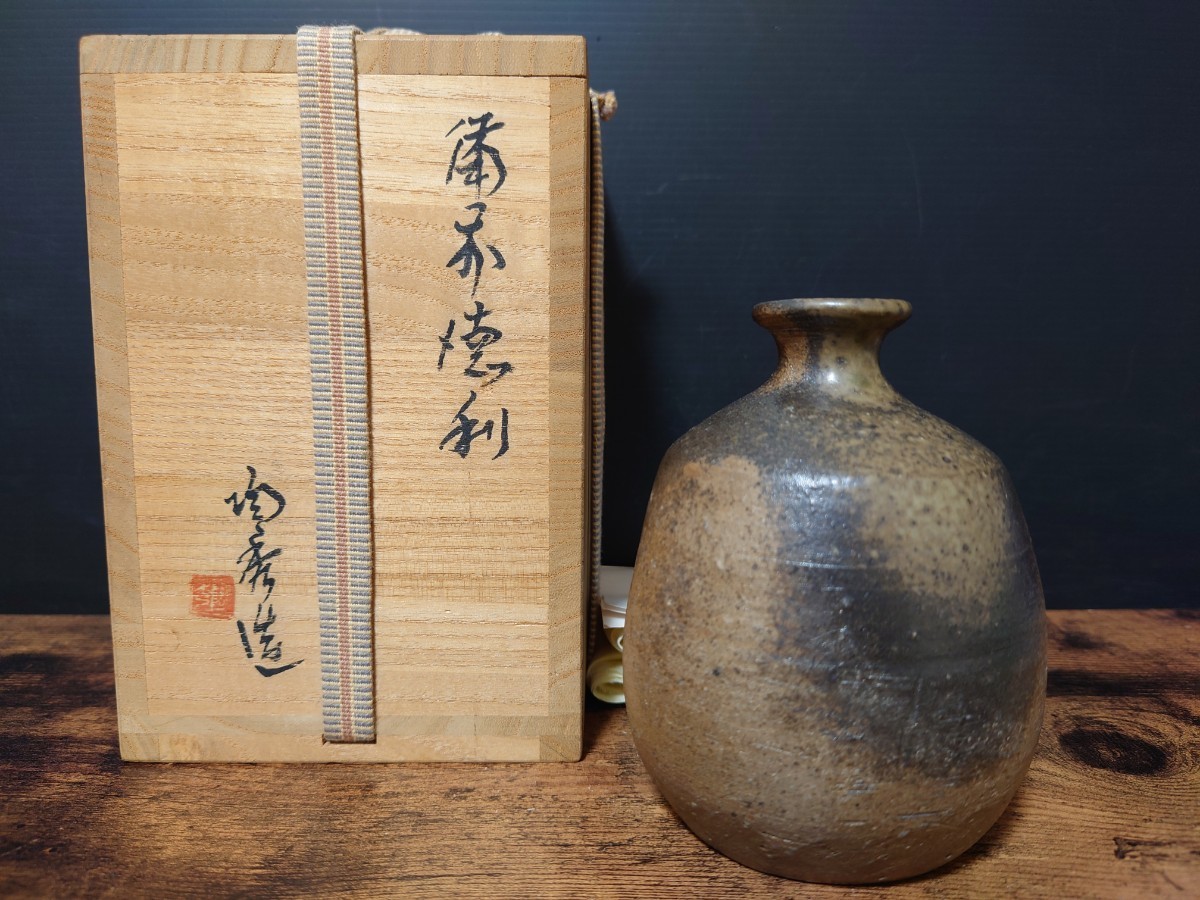 備前徳利
陶秀造